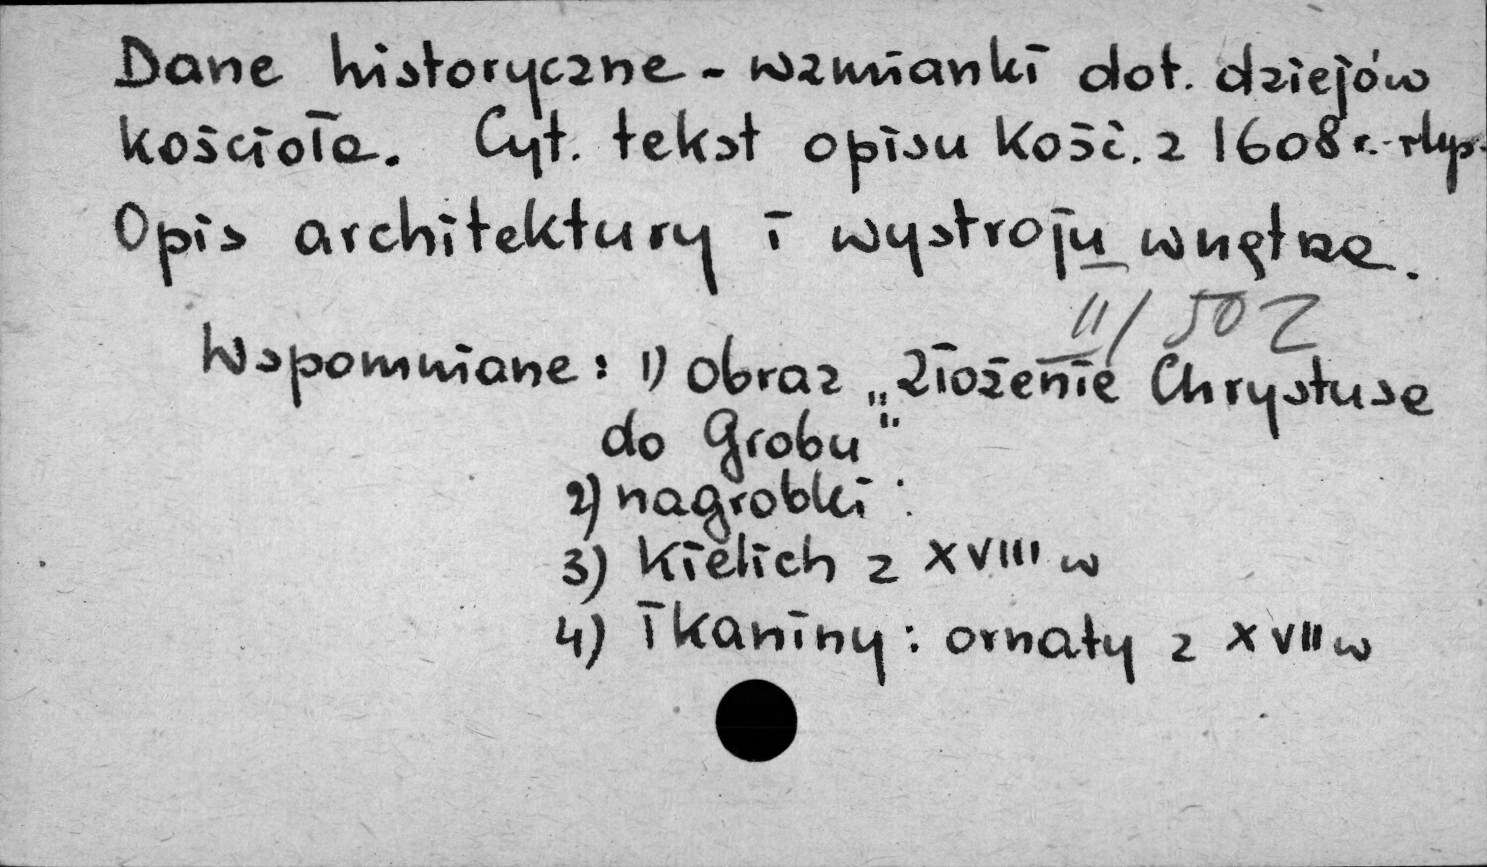 Dane historyczne - wzmianki dot. dziejów
kościoła. Cyt. tekst opisu Kość. z 1608 r. - rkps.
Opis architektury i wystroju wnętrza.
II/ 50 Z
Wspomniane: 1) obraz „Złożenie Chrystusa
do Grobu"
2) nagrobki:
3) Kielich z XVIII w
4) Tkaniny: ornaty z XVII w